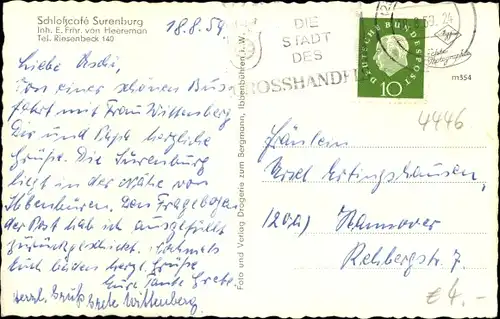 Schloßcafé Surenburg
Inh. E. Frhr. von Heereman
Tel. Riesenbeck 140
18.8.59
Liebe
Von einer schönen Bus-
fahrt mit Frau Wittenberg
Dir und Papa herzliche
Grüße. Die Surenburg
liegt in der Nähe von
Ibbenbüren. Den Fragebogen
der Post hab ich ausgefüllt
zurückgeschickt. Nochmals
Euch beiden herzl. Grüße
Eure Tante Grete.
Herzl. Gruß Grete Wittenberg.
Foto und Verlag Drogerie zum Bergmann, Ibbenbüren i. W.
DIE
STADT
DES
GROSSHANDELS
59.24
DEUTSCHE BUNDESPOST
10
m354
4446
Fräulein
(20a) Hannover
Rehbergstr. 7.
£4.-